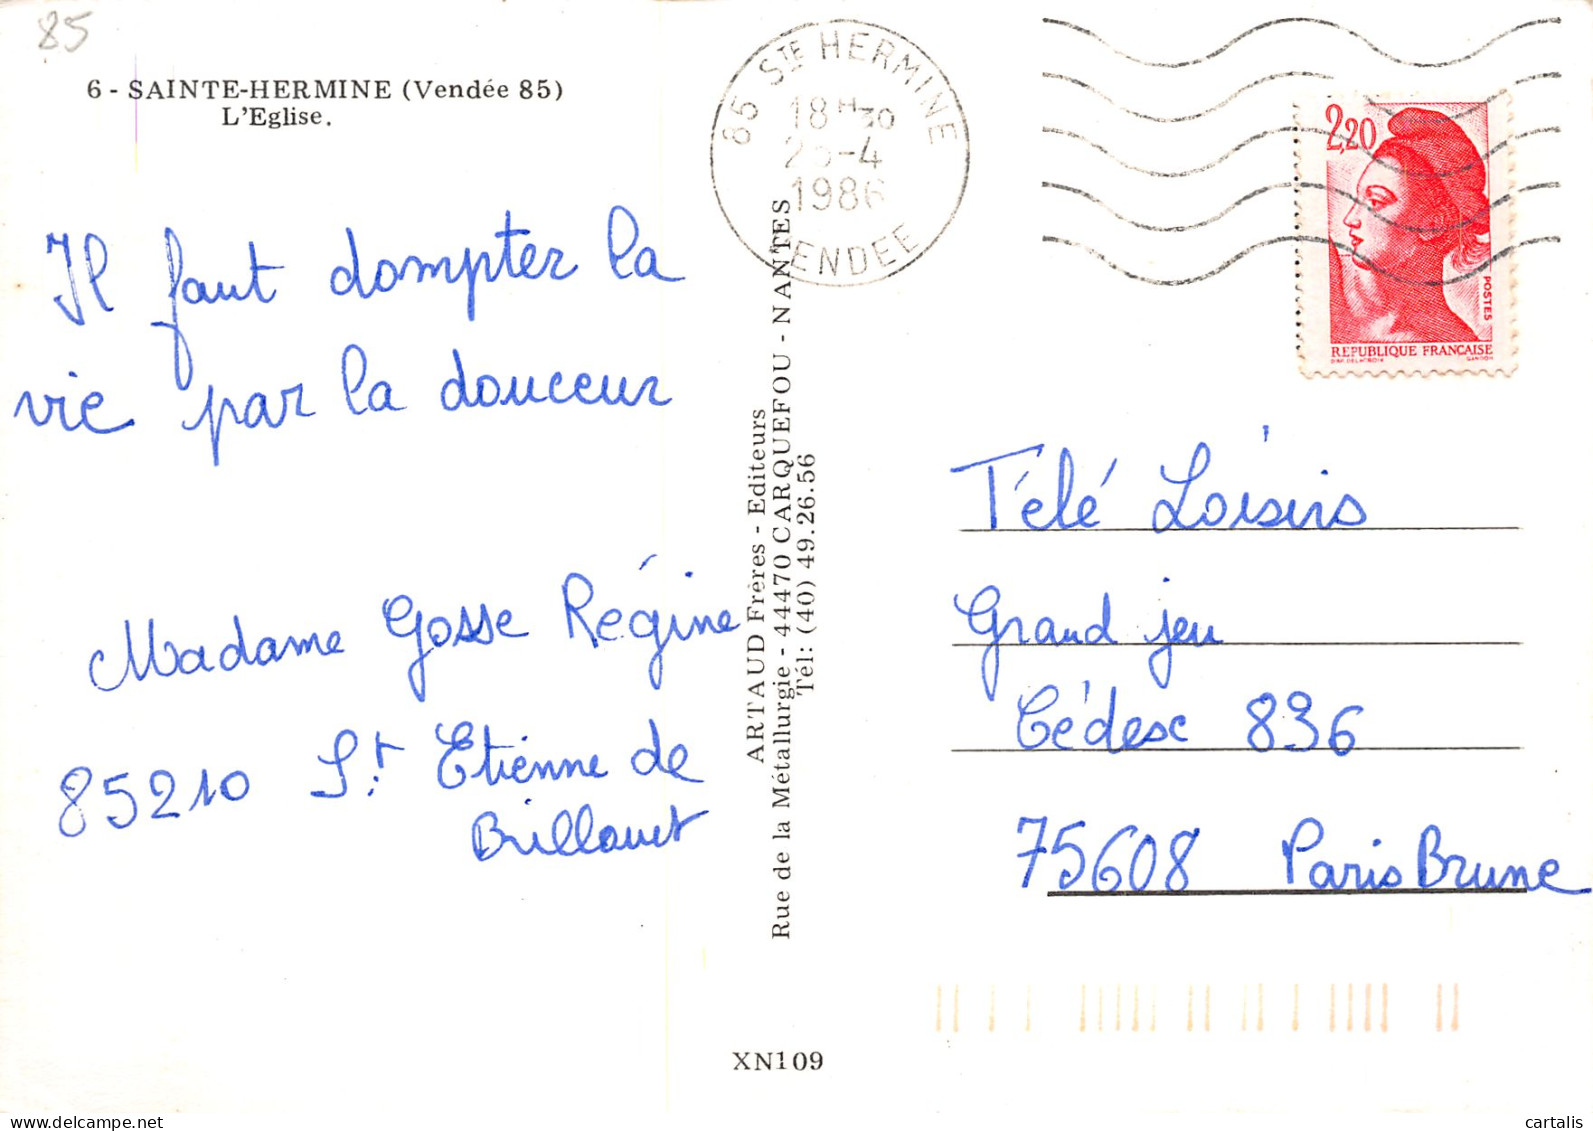 85
6 - SAINTE-HERMINE (Vendée 85)
L'Eglise.
Il faut dompter la
vie par la douceur
Madame Gosse Régine
85210 St. Etienne de
Brillouet
85 STE HERMINE
18H30
-4
1986
VENDEE
2,20
POSTES
REPUBLIQUE FRANÇAISE
D'AP. DELACROIX GANDON
ARTAUD Frères - Editeurs
Rue de la Métallurgie - 44470 CARQUEFOU - NANTES
Tél: (40) 49.26.56
Télé Loisirs
Grand jeu
Cédesc 836
75608 Paris Brune
XN109
cartalis